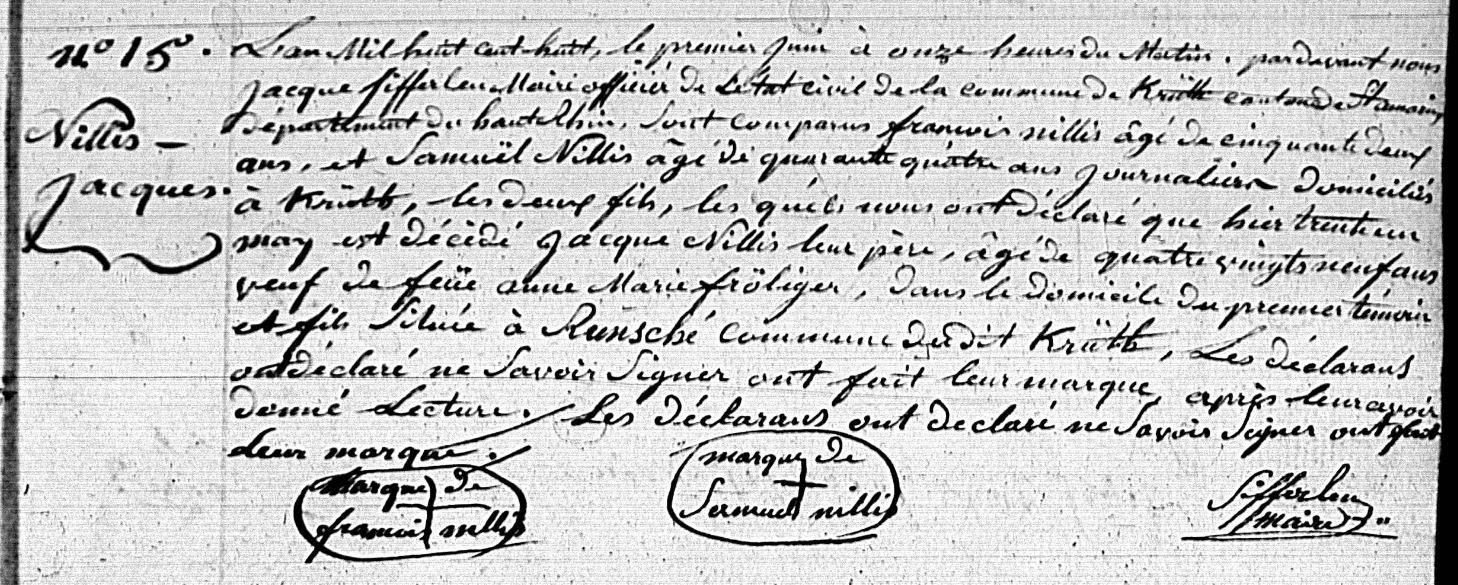 n.º 15.
Nillis —
Jacques.
L'an Mil huit cent huit, le premier Juin à onze heures du Matin. pardevant nous
Jacque Sifferlen Maire officier de Létat civil de la commune de Krüth canton de St amarin
département du haut Rhin, Sont comparus francois nillis âgé de cinquante deux
ans, et Samuël Nillis âgé de quarante quatre ans Journaliers domiciliés
à Krüth, les deux fils, les quels nous ont déclaré que hier trente un
may est décédé Jacque Nillis leur père, âgé de quatre vingts neuf ans
veuf de feüe anne Marie fröliger, dans le domicile du premier témoin
et fils Situé à Runsché commune du dit Krüth, Les déclarans
ont déclaré ne Savoir Signer ont fait leur marque, après leur avoir
donné Lecture. Les déclarans ont declaré ne Savoir Signer ont fait
leur marque.
Marque de
francois nillis
marque de
Samuel nillis
Sifferlen
maire